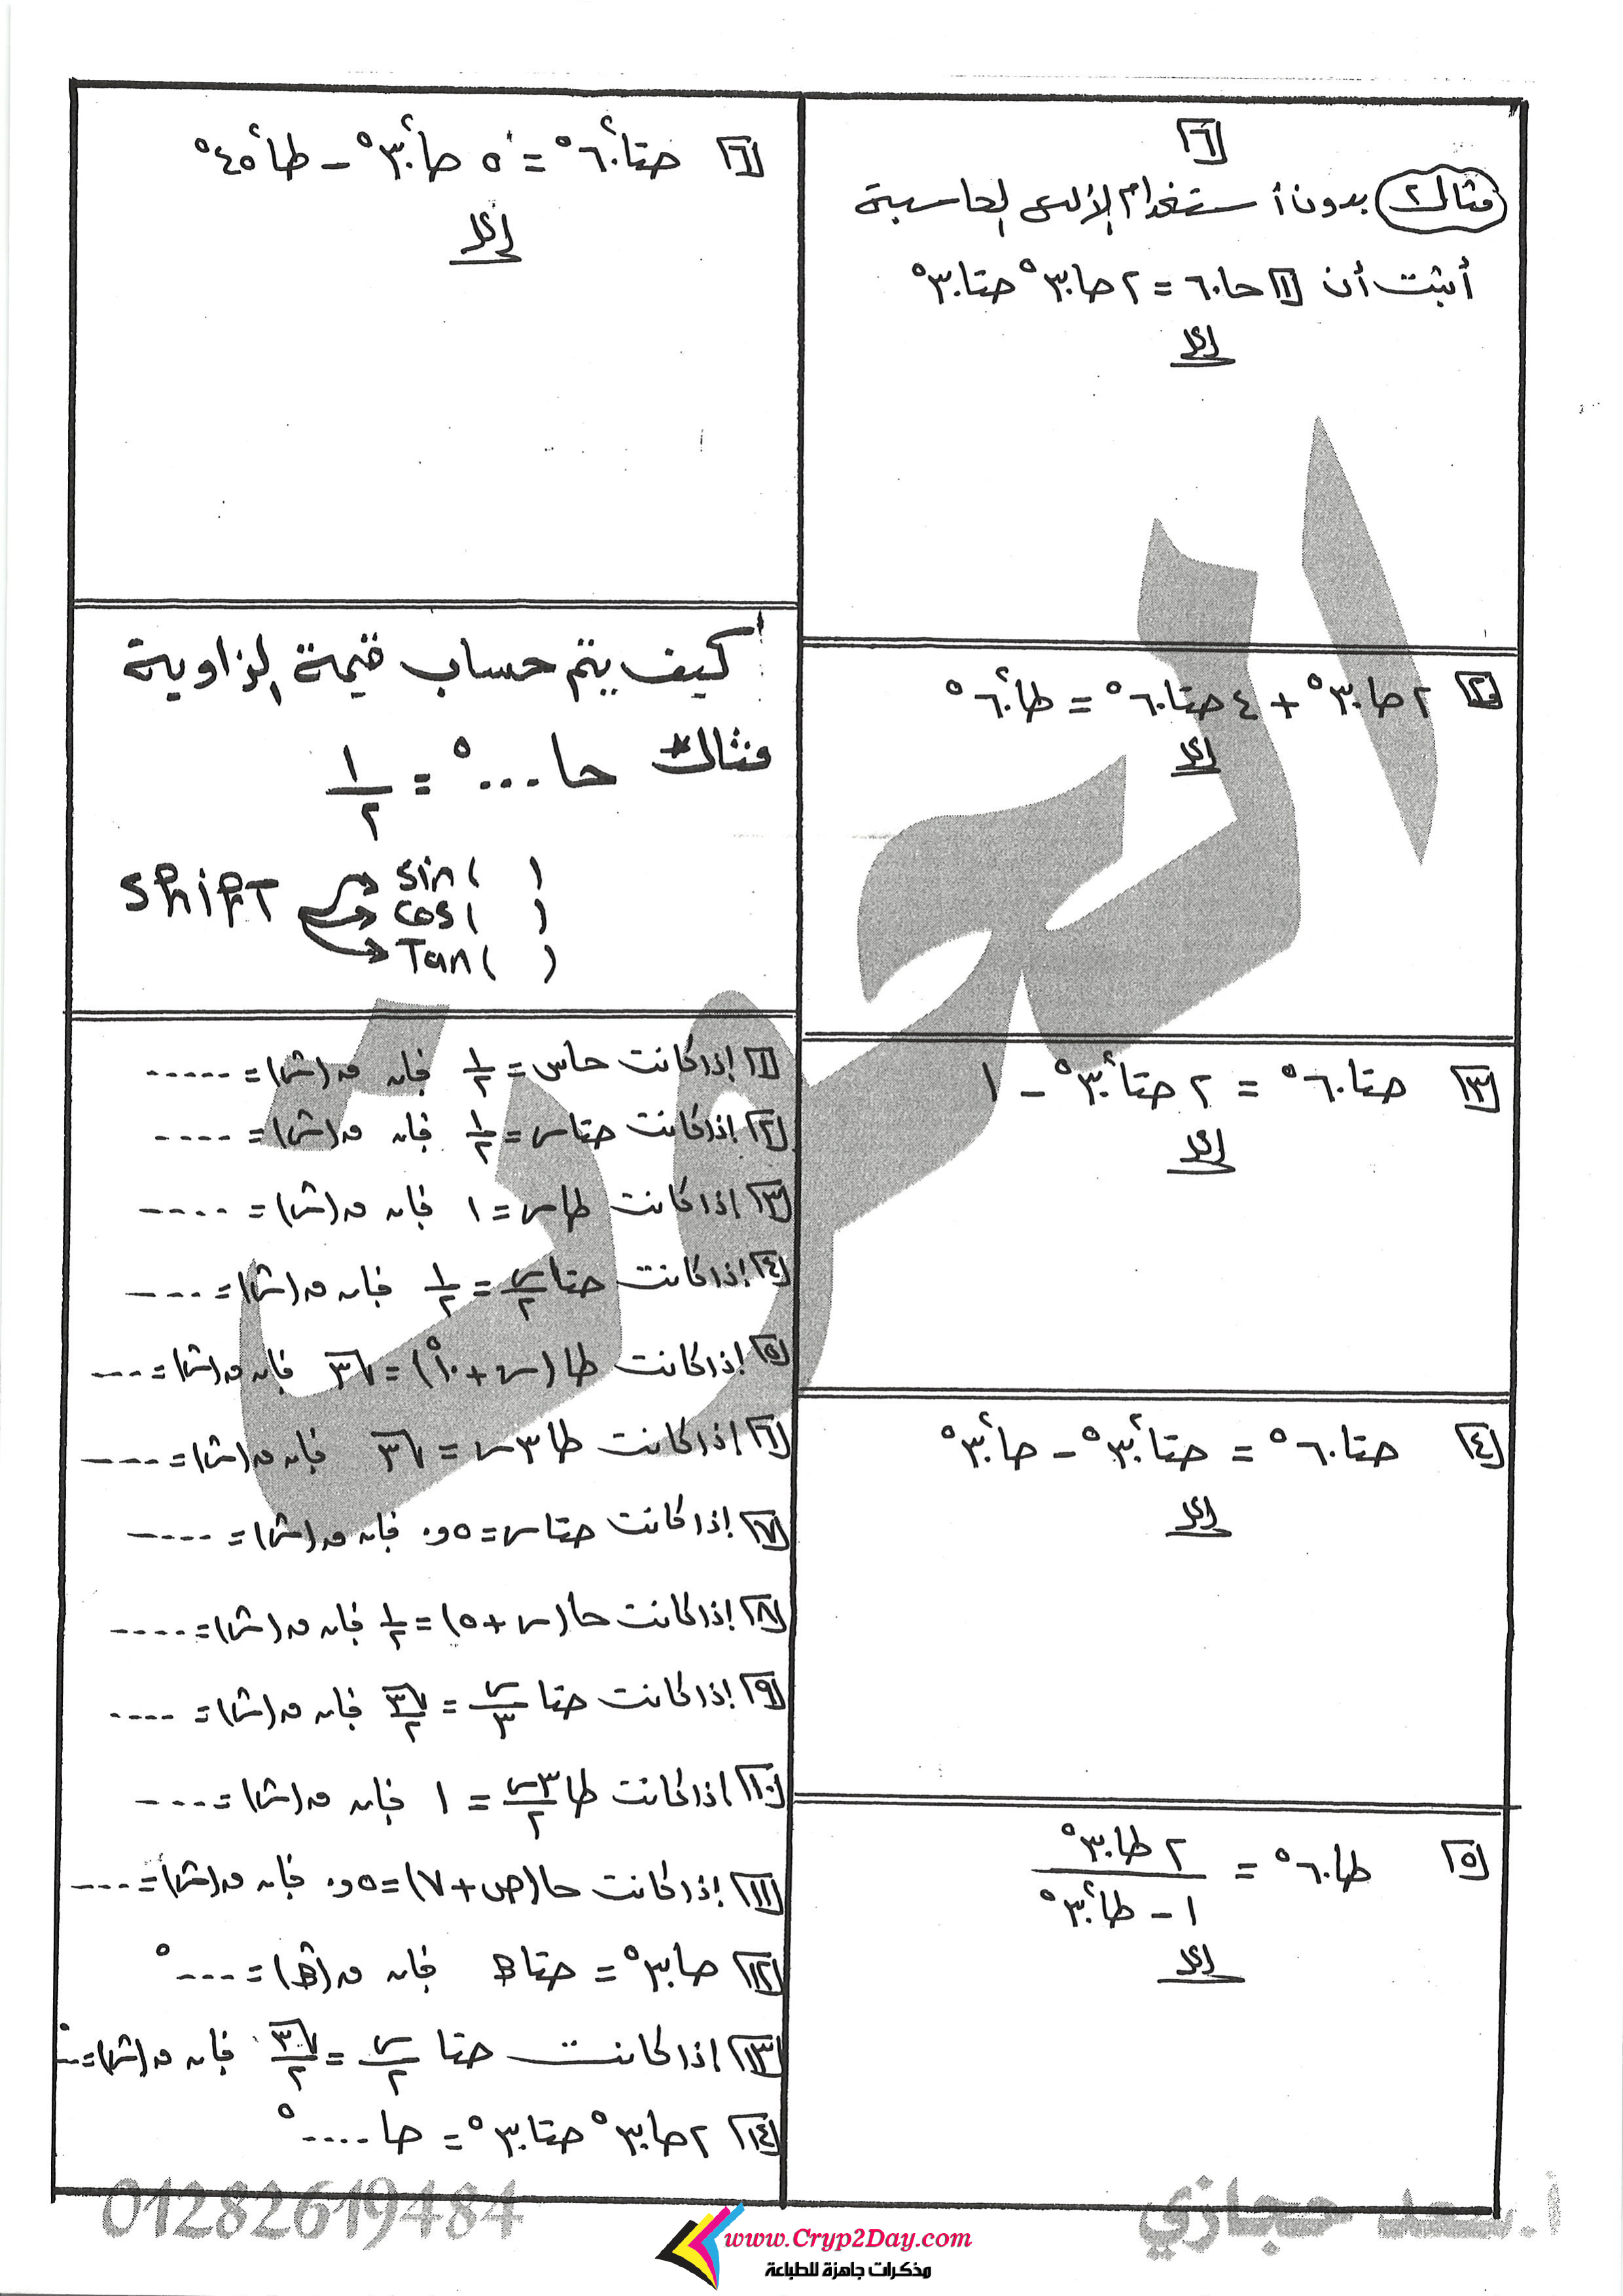 ٦
مثال ٢ بدون استخدام الآلة الحاسبة
أثبت أن ١ حا ٦٠ = ٢ حا ٣٠° حتا ٣٠°
الحل
٢ ٢ حا ٣٠° + ٤ حتا ٦٠° = طا² ٦٠°
الحل
٣ حتا ٦٠° = ٢ حتا² ٣٠° - ١
الحل
٤ حتا ٦٠° = حتا² ٣٠° - حا² ٣٠°
الحل
٥ طا ٦٠° = ٢ طا ٣٠° / ١ - طا² ٣٠°
الحل
٦ حتا² ٦٠° = ٥ حا² ٣٠° - طا² ٤٥°
الحل
كيف يتم حساب قيمة الزاوية
مثال * حا ...° = ١/٢
SHIFT
sin( )
cos( )
Tan( )
١ إذا كانت حا س = ١/٢ فإن ق(س) = -----
٢ إذا كانت حتا س = ١/٢ فإن ق(س) = ----
٣ إذا كانت طا س = ١ فإن ق(س) = ----
٤ إذا كانت حتا س/٢ = ١/٢ فإن ق(س) = ----
٥ إذا كانت طا (س + ١٠°) = √٣ فإن ق(س) = ---
٦ إذا كانت طا ٣س = √٣ فإن ق(س) = ----
٧ إذا كانت حتا س = ٥و٠ فإن ق(س) = ----
٨ إذا كانت حا (س + ٥) = ١/٢ فإن ق(س) = ----
٩ إذا كانت حتا س/٣ = √٣/٢ فإن ق(س) = ----
١٠ إذا كانت طا ٣س/٢ = ١ فإن ق(س) = ----
١١ إذا كانت حا (ص + ٧) = ٥و٠ فإن ق(س) = ----
١٢ حا ٣٠° = حتا B فإن ق(B) = ----°
١٣ إذا كانت حتا س/٢ = √٣/٢ فإن ق(س) = --
١٤ ٢ حا ٣٠° حتا ٣٠° = حا ....°
01282619484
أ.سعد حجازي
www.Cryp2Day.com
مذكرات جاهزة للطباعة